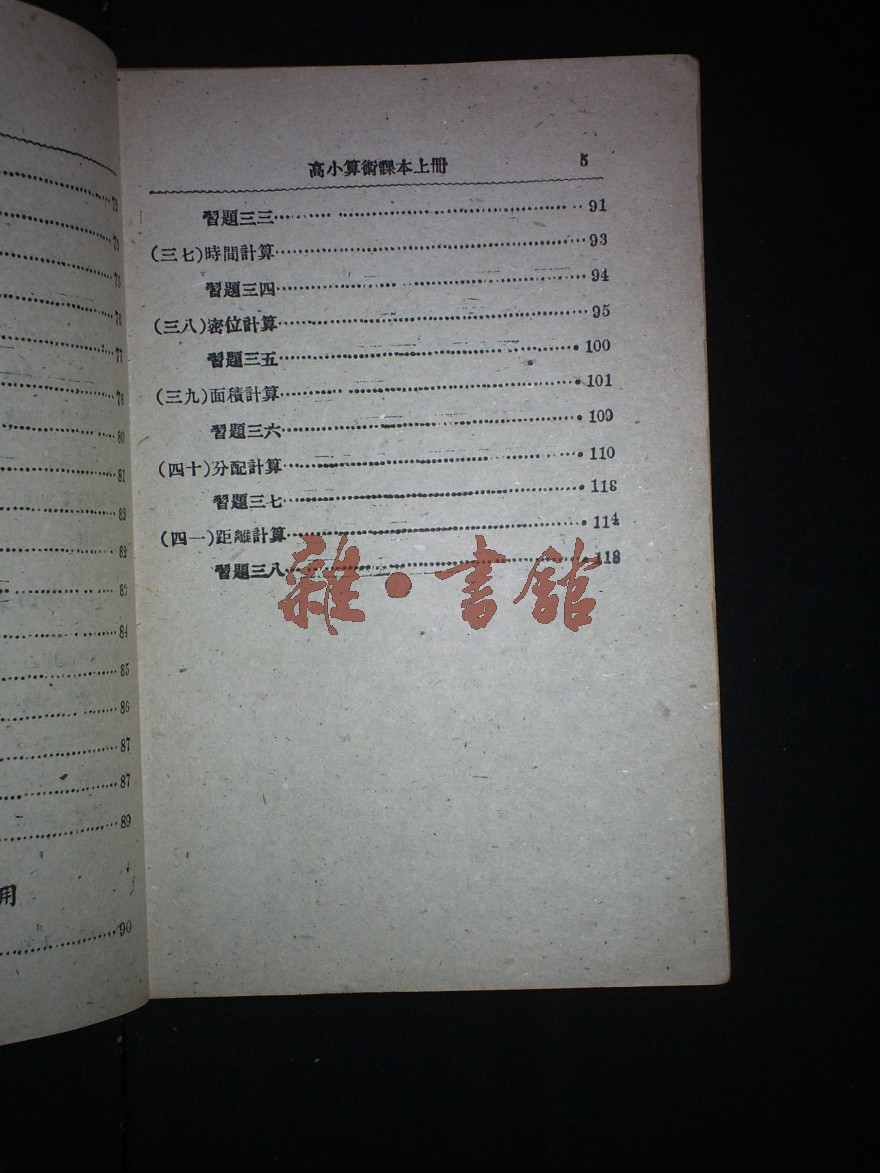 72
73
75
76
77
78
80
81
82
82
83
84
85
86
87
87
89
用
90
高小算術課本上冊 5
習題三三 91
(三七)時間計算 93
習題三四 94
(三八)密位計算 95
習題三五 100
(三九)面積計算 101
習題三六 109
(四十)分配計算 110
習題三七
(四一)距離計算 114
習題三八 118
雜·書館